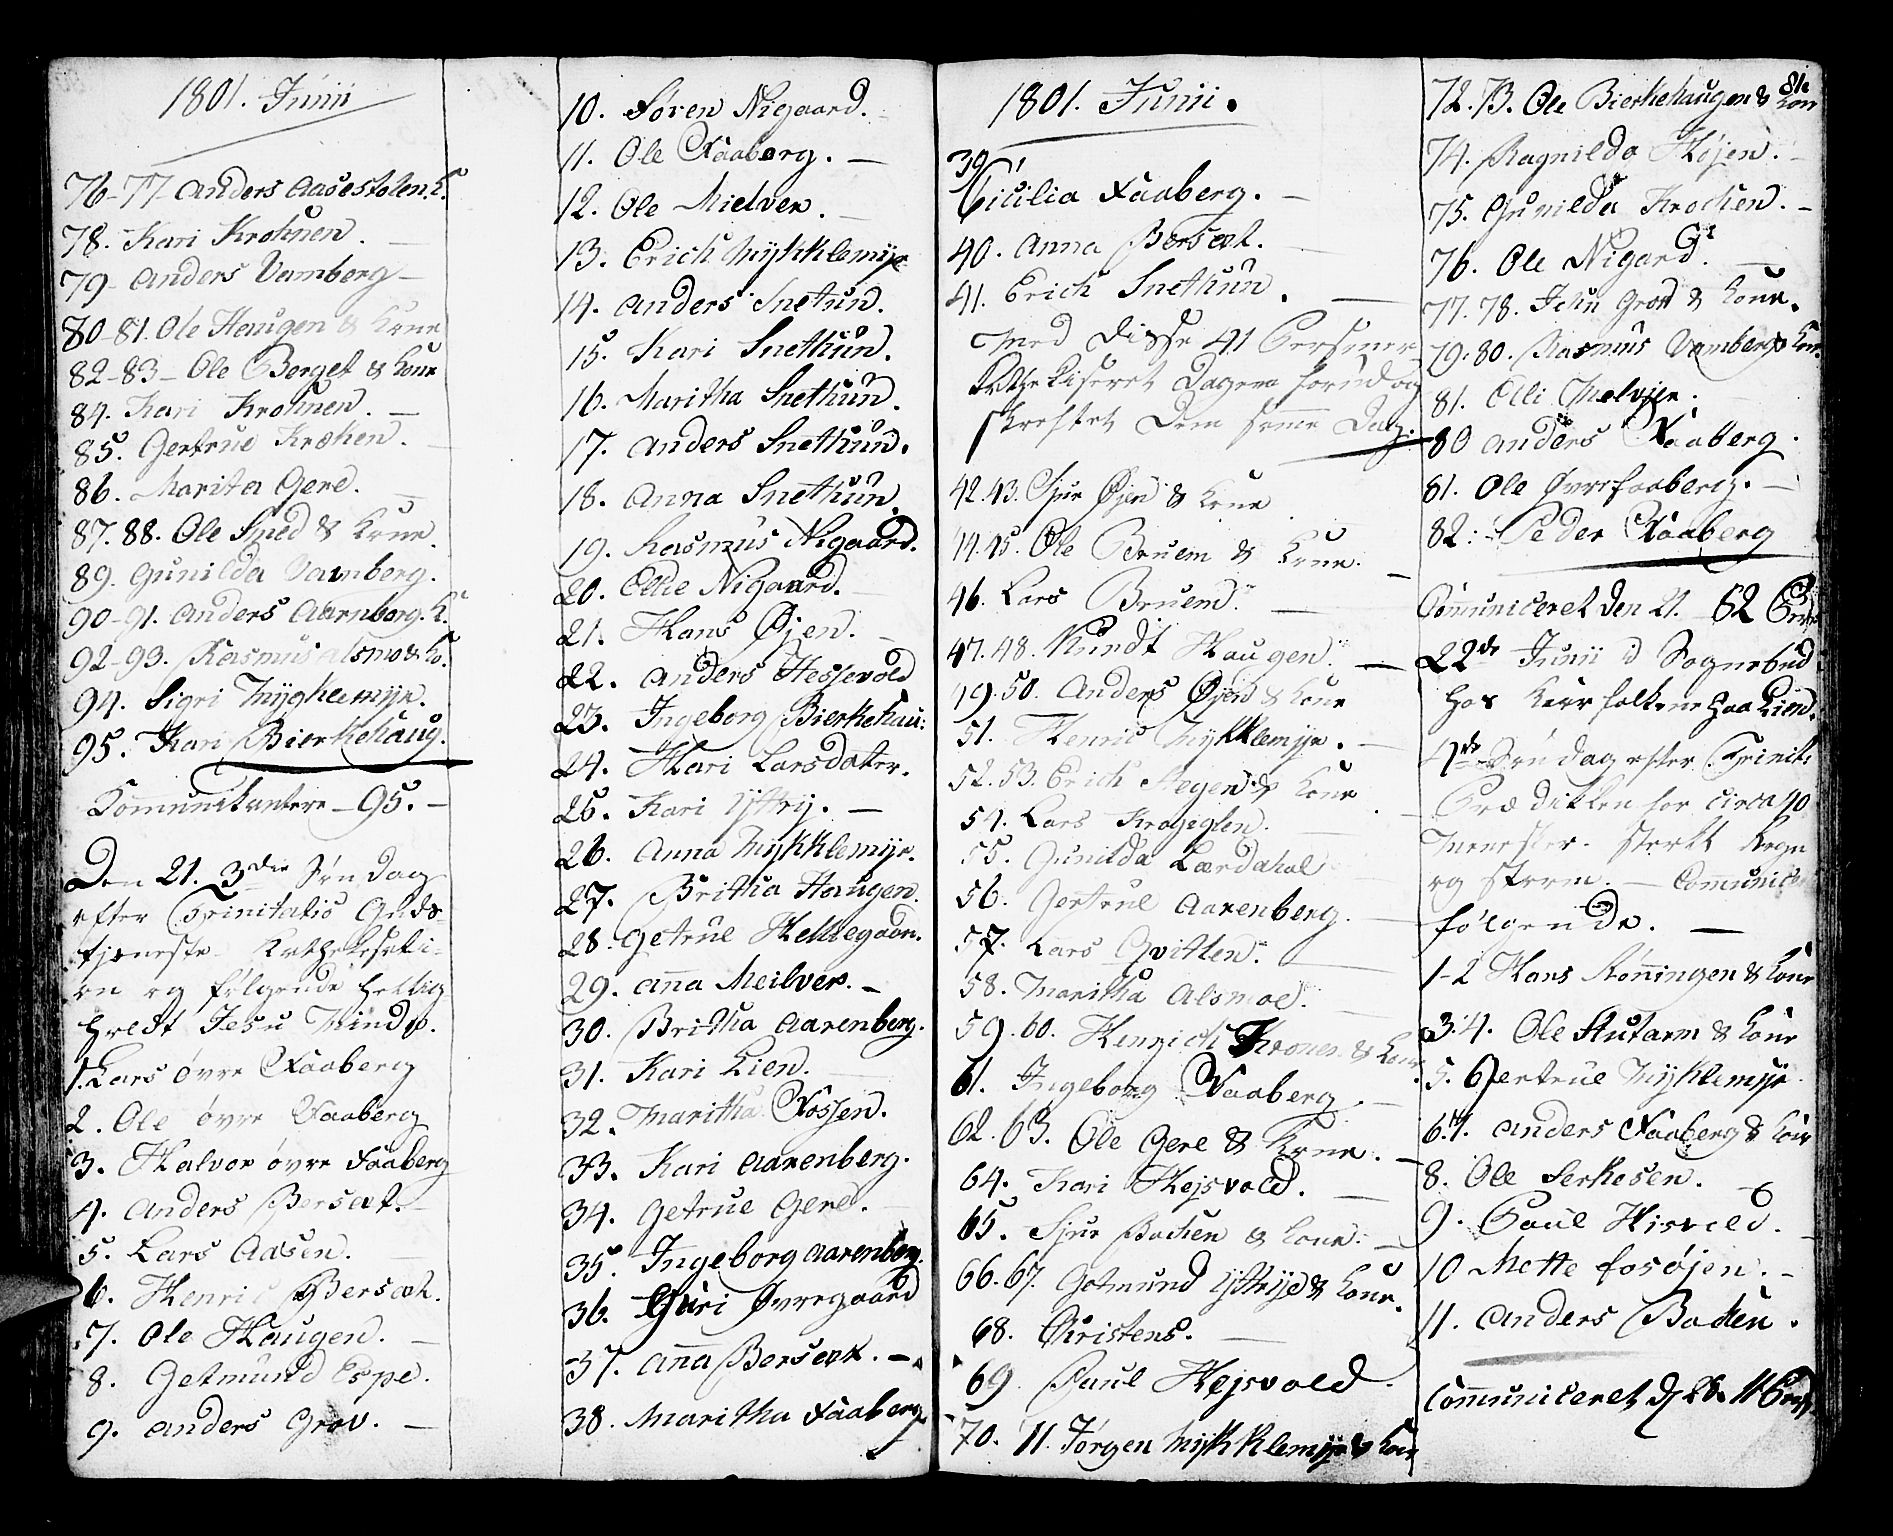 1801. Junii
76-77 Anders Aasestolen. K.
78. Kari Krohnen.
79- Anders Vamberg-
80-81. Ole Haugen & Kone
82-83- Ole Berget & Kone
84. Kari Krohnen. -
85. Gertrue Kroken. -
86. Marita Gere. -
87. 88. Ole Smed & Kone.
89. Gunilda Vamberg.
90-91. Anders Aarnborg. K.
92-93. Rasmus Alsmo & Ko.
94. Sigri Mygklemyr.
95. Kari Bierkehaug.
Communikantere - 95. -
Den 21. 3die Søndag
efter Trinitatis Guds-
tjeneste Kathekesati-
on og følgende hellig
holdt Jesu Minde.
1. Lars Øvre Faaberg
2. Ole Øvre Faaberg
3. Halvor Øvre Faaberg
4. Anders Bersæt. -
5. Lars Aasen. -
6. Henric Bersæt.
7. Ole Haugen. -
8. Getmund Espe.
9. Anders Grov. -
10. Søren Nigaard. -
11. Ole Faaberg. -
12. Ole Mielver. -
13. Erich Mykklemyr
14. Anders Snetun.
15. Kari Snethun.
16. Maritha Snethun.
17. Anders Snethun.
18. Anna Snethun.
19. Rasmus Nigaard.
20. Ellie Nigaard.
21. Hans Øjen. -
22. Anders Hessevold
23. Ingeborg Bierkehau:
24. Kari Larsdater.
25. Kari Yttrij. -
26. Anna Mykklemyr.
27. Britha Haugen.
28. Getrue Hellegaon.
29. Anna Meilver. -
30. Britha Aarenberg.
31. Kari Lien. -
32. Maritha Fossen.
33. Kari Aarenberg.
34. Getrue Gere. -
35. Ingeborg Aarenberg.
36. Guri Øvregaard
37. Anna Bersæt. -
38. Maritha Faaberg
1801. Junii.
39. Cicilia Faaberg. -
40. Anna Bersæt. -
41. Erich Snethun. -
Med disse 41 Personer
kathekiseret Dagen forud og
skreftet dem samme Dag.
42. 43. Sjur Øjen & Kone
44. 45. Ole Bruem & Kone. -
46. Lars Bruem. -
47. 48. Knudt Haugen. -
49. 50. Anders Øjen & Kone
51. Henric Mykklemyr. -
52. 53. Erich Hegen & Kone
54. Lars Krogeglen. -
55. Gunilda Lærdahal
56. Gertrue Aarenberg. -
57. Lars Qvitlen. -
58. Maritha Alsmoe. -
59. 60. Henrich Kronen & Kone.
61. Ingeborg Faaberg. -
62. 63. Ole Gere & Kone. -
64. Kari Hejsvold. -
65. Sjur Bachen & Kone. -
66. 67. Gotmund Yttrije & Kone.
68. Christens. -
69 Paul Hejsvold. -
70. 71. Jørgen Mykklemyr & Kone
81.
72. 73. Ole Bierkehaugen & Kone
74. Ragnilda Højen. -
75. Gunilda Krochen. -
76. Ole Nigard. -
77. 78. John Grov & Kone.
79. 80. Rasmus Vamberg & Kone.
81. Elli Melvjer. -
80 Anders Faaberg.
81. Ole Øvrefaaberg. -
82: Peder Faaberg
Communiceret den 21. 82 Pers
22de Junii i Sognebud
hos Kaarfolkene paa Lien.
4de Søndag efter Trinit:
Prædikken for circa 40
Mennesker. Sterkt Regn
og storm. - Communice
følgende. -
1-2 Hans Rønningen & Kone
3. 4. Ole Stutarm & Kone
5. Gertrue Myklemyr
6. 7. Anders Faaberg & Kone
8. Ole Serkesen. -
9. Poul Hisvold. -
10 Mette Fosøjen. -
11. Anders Bachen.
Communiceret d. 28. 11 Pers.